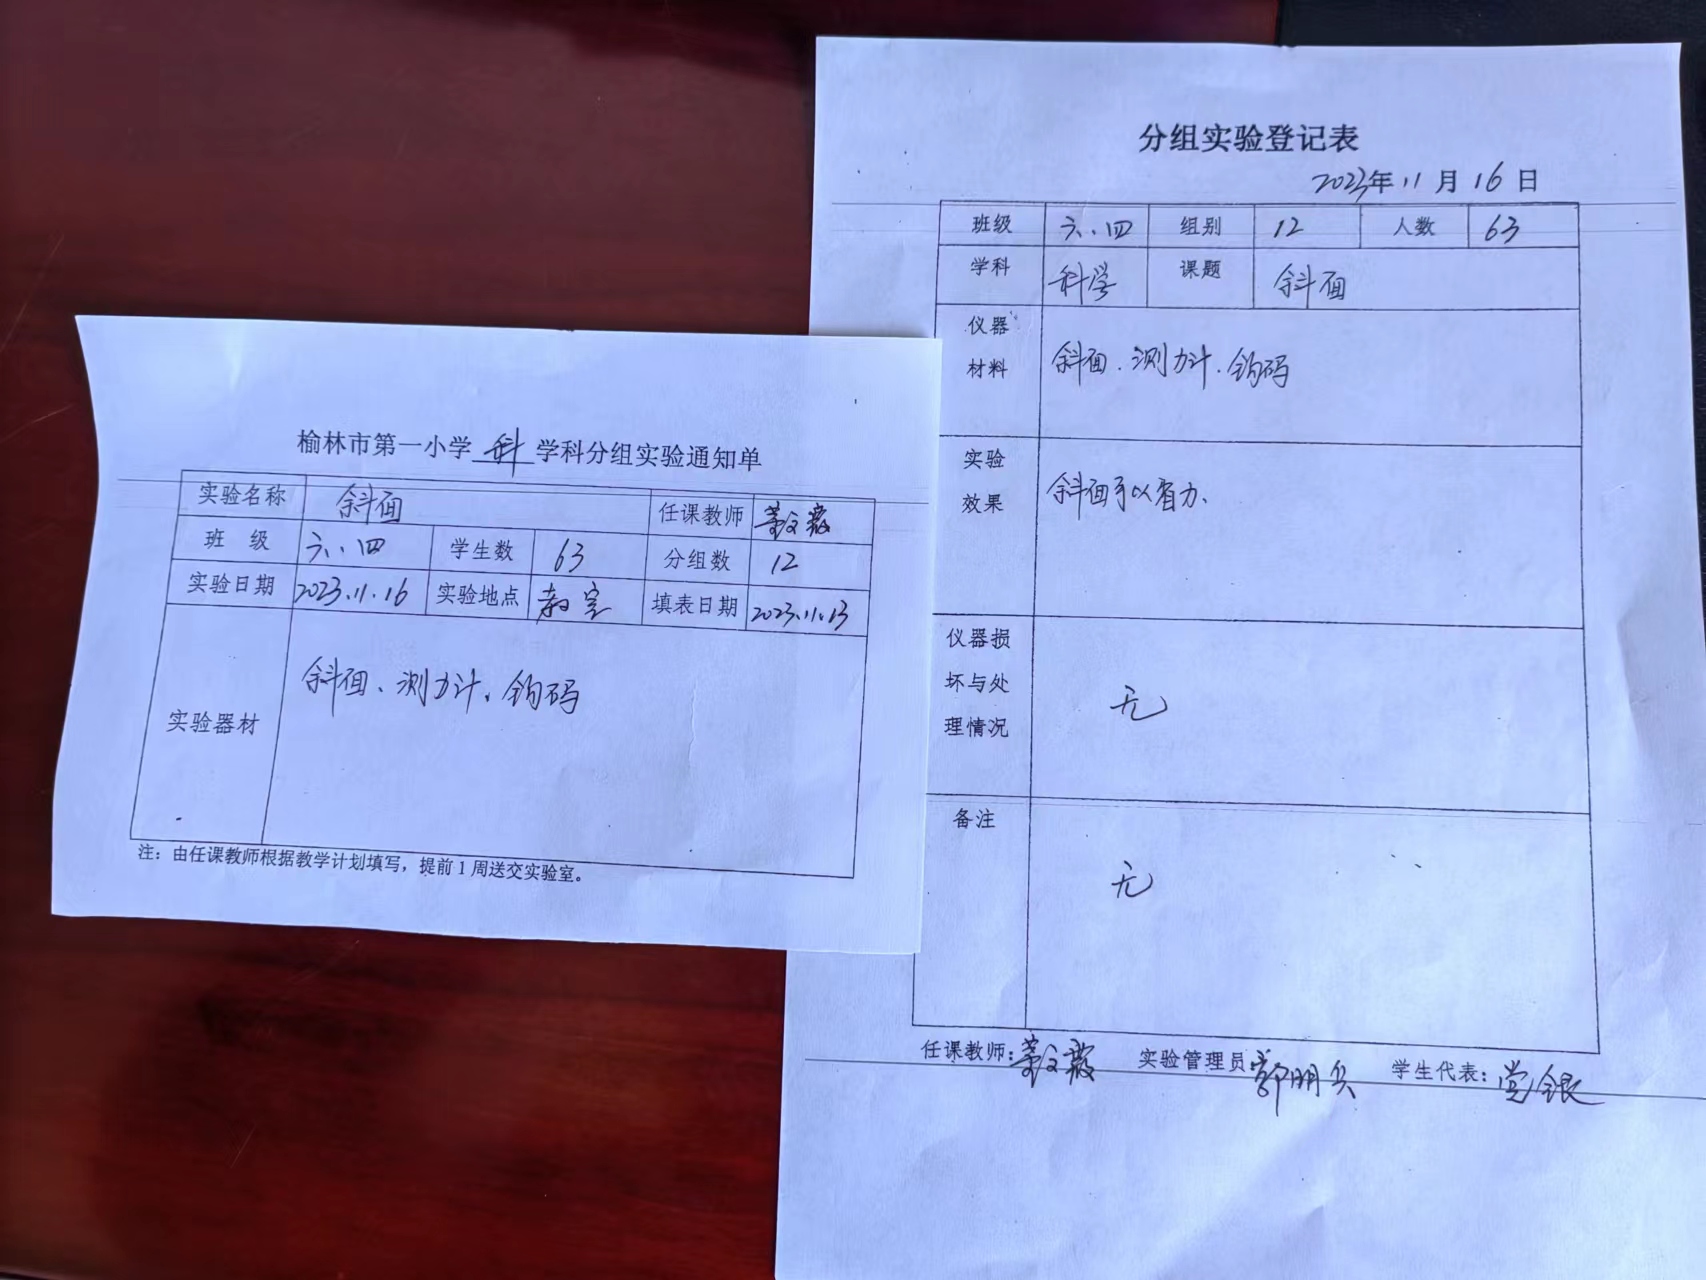 榆林市第一小学 科 学科分组实验通知单
实验名称 斜面 任课教师
班 级 六.四 学生数 63 分组数 12
实验日期 2023.11.16 实验地点 教室 填表日期 2023.11.13
实验器材 斜面、测力计、钩码
注：由任课教师根据教学计划填写，提前1周送交实验室。
分组实验登记表
2023年11月16日
班级 六.四 组别 12 人数 63
学科 科学 课题 斜面
仪器
材料 斜面、测力计、钩码
实验
效果 斜面可以省力、
仪器损
坏与处
理情况 无
备注 无
任课教师： 实验管理员 郭明兵 学生代表：党银